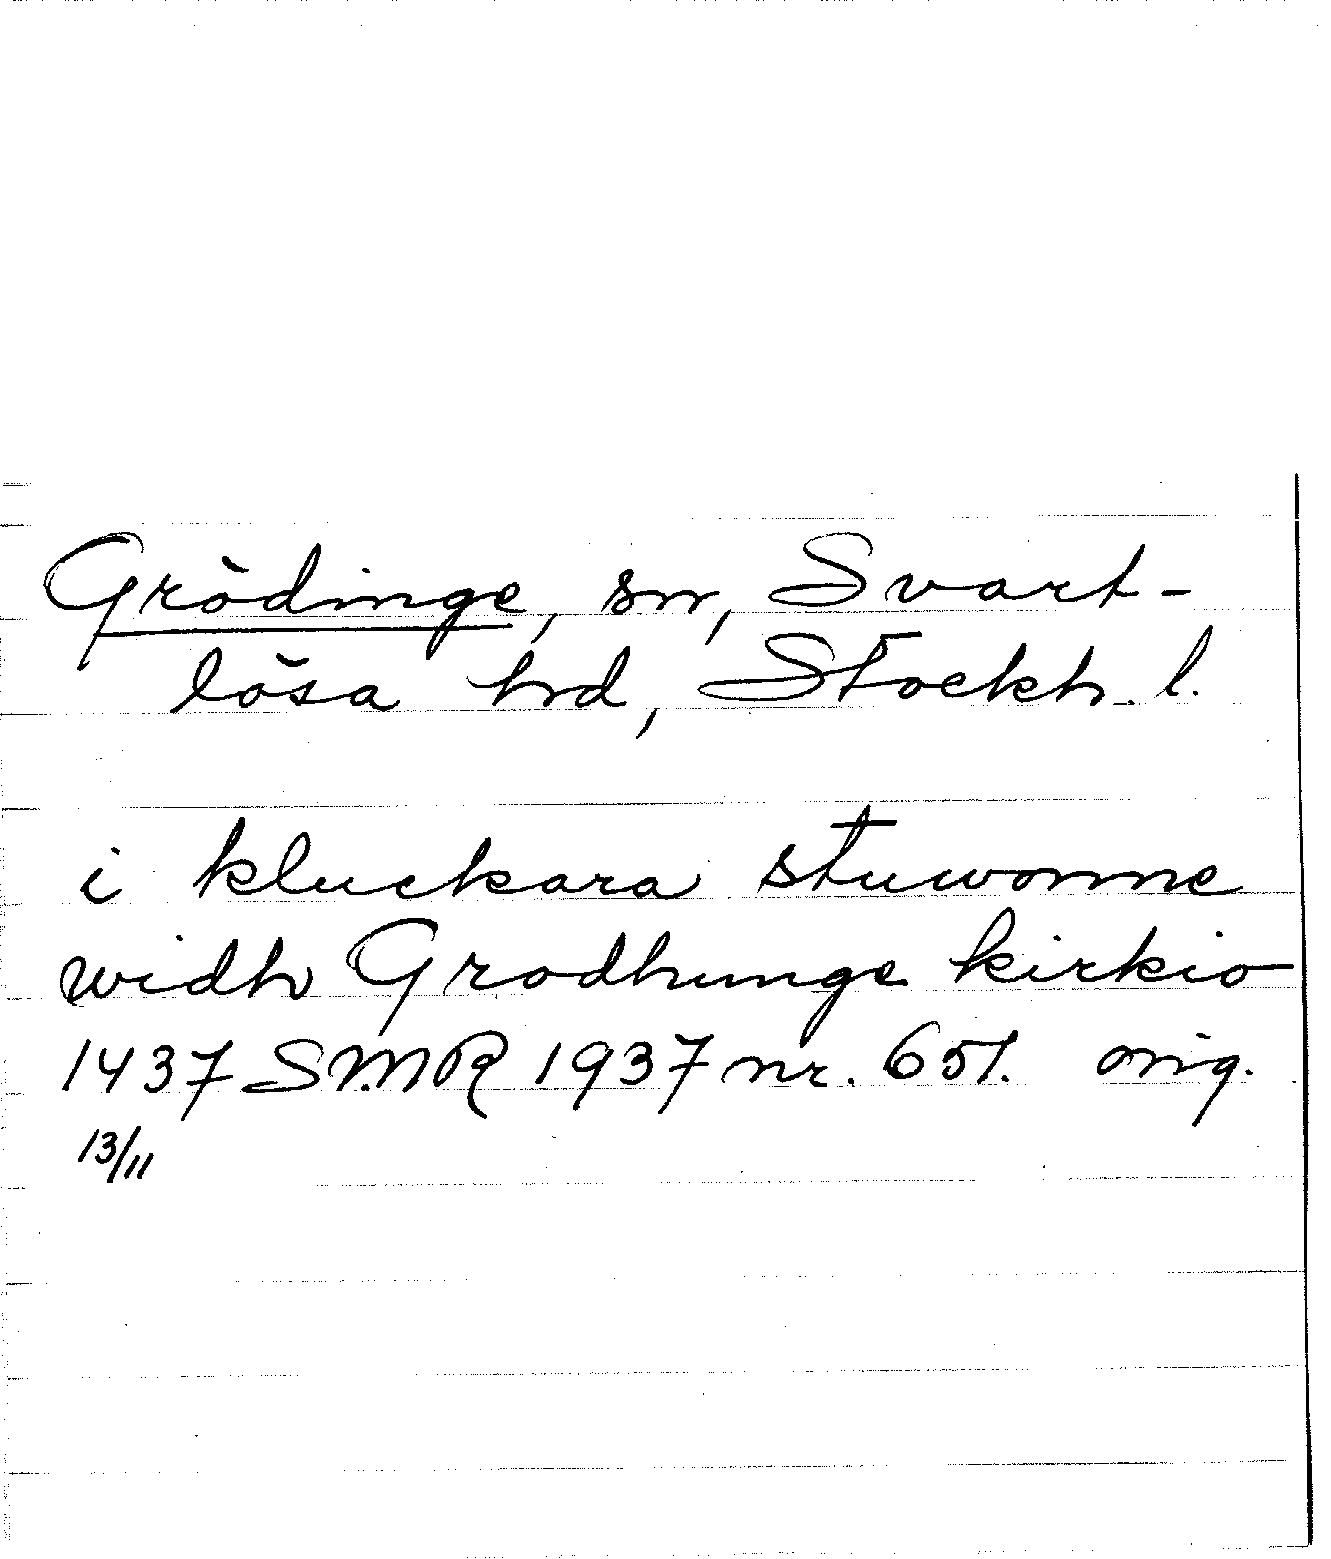 Grödinge, sn, Svart-
lösa hrd, Stockh. l.
i kluckara stuwonne
widh Grodhunge kirkio
1437 SMR 1937 nr. 651. orig.
13/11